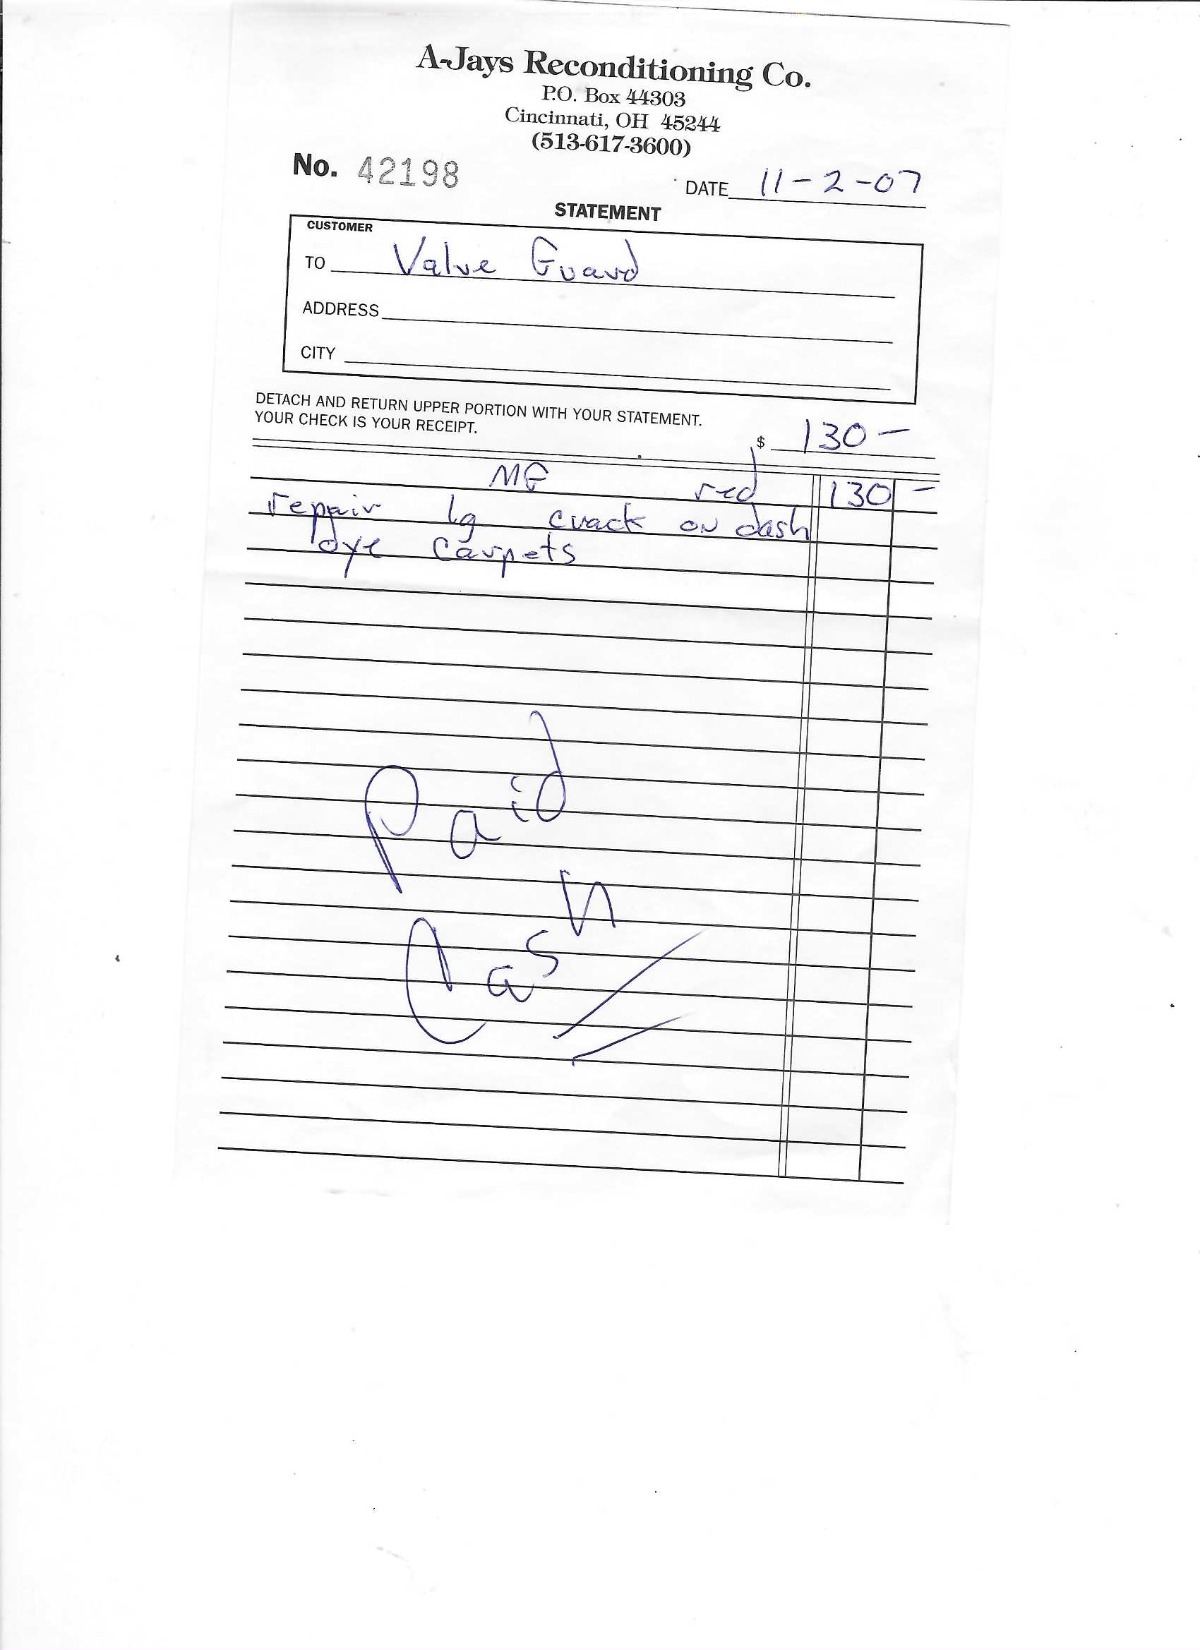 A-Jays Reconditioning Co.
P.O. Box 44303
Cincinnati, OH 45244
(513-617-3600)
No. 42198
DATE 11-2-07
STATEMENT
CUSTOMER
TO Valve Guard
ADDRESS
CITY
DETACH AND RETURN UPPER PORTION WITH YOUR STATEMENT.
YOUR CHECK IS YOUR RECEIPT.
$ 130-
MG red 130 -
repair lg crack on dash
dye carpets
Paid
Cash